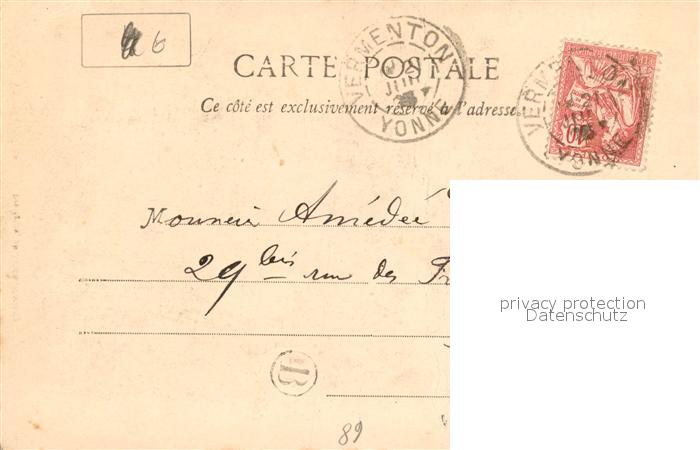 6
CARTE POSTALE
VERMENTON
JUIN
YONNE
VERMENTON
YONNE
10
Ce côté est exclusivement réservé à l'adresse.
Monsieur Amédée
29 bis rue des
privacy protection
Datenschutz
B
89